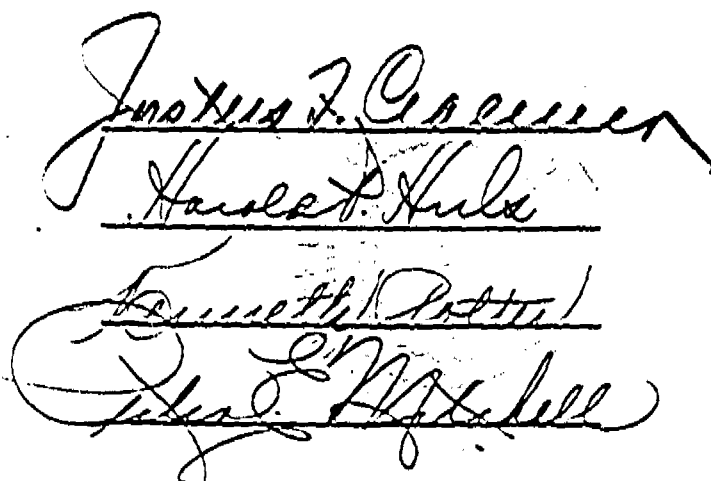 Justus F. Craemer
Harold P. Huls
Kenneth Potter
E. Mitchell